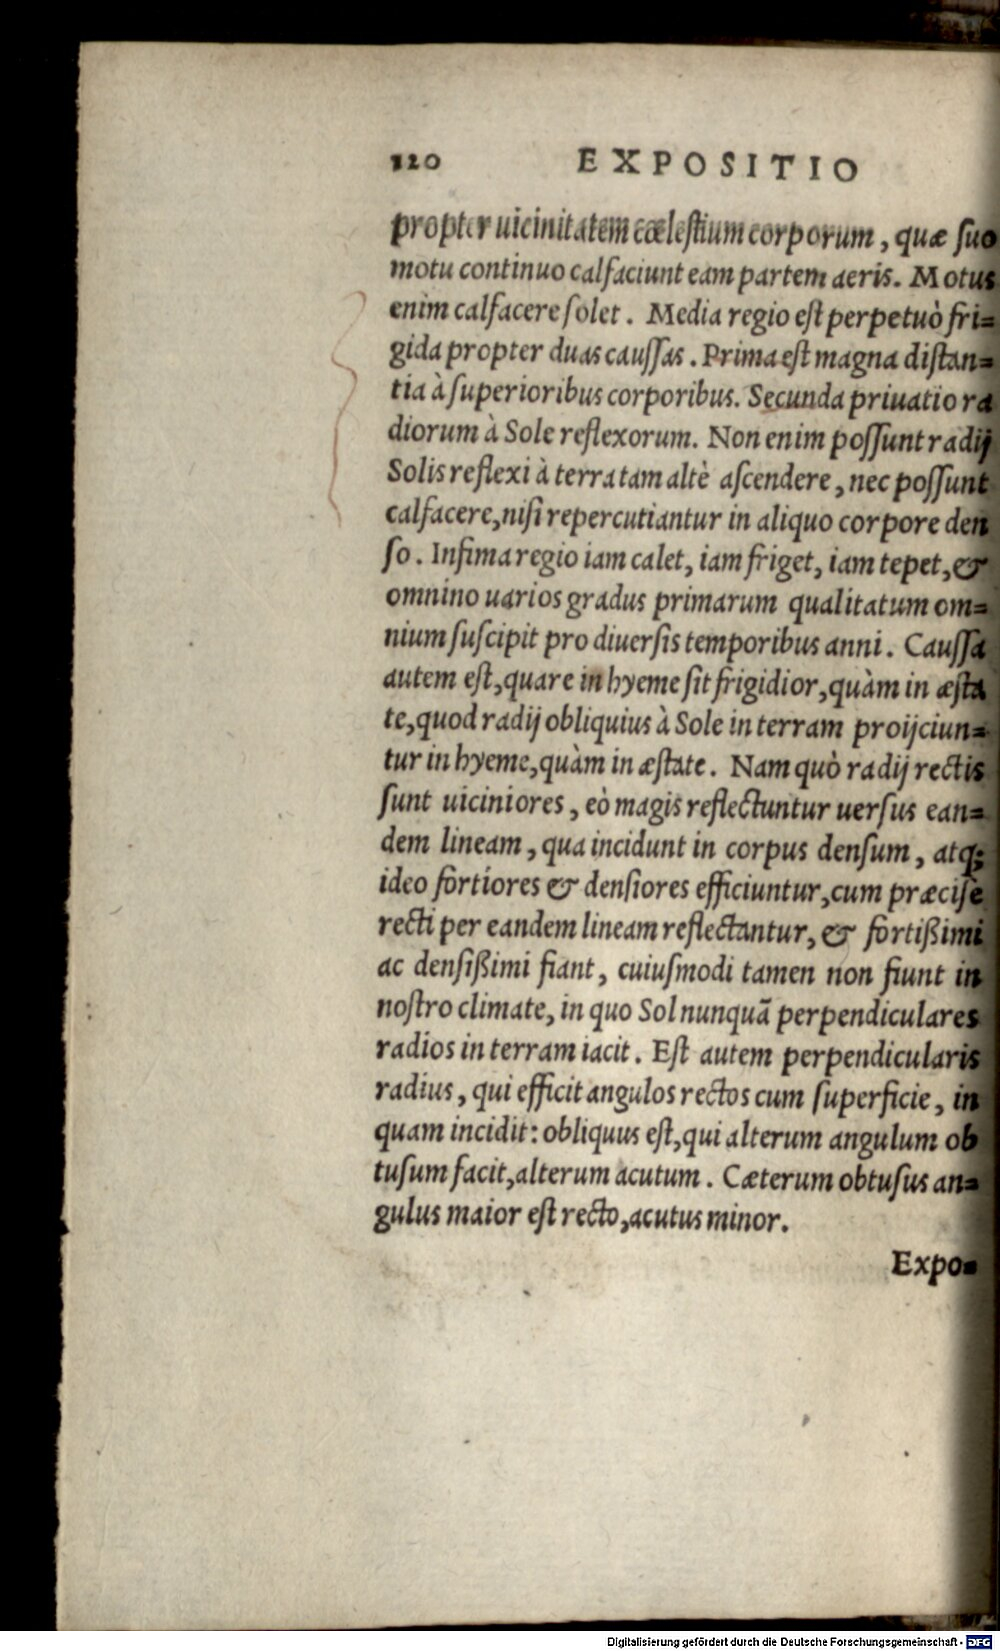 120 EXPOSITIO
propter uicinitatem cœlestium corporum, quæ suo
motu continuo calfaciunt eam partem aeris. Motus
enim calfacere solet. Media regio est perpetuò fri=
gida propter duas caussas. Prima est magna distan=
tia à superioribus corporibus. Secunda priuatio ra
diorum à Sole reflexorum. Non enim possunt radij
Solis reflexi à terra tam altè ascendere, nec possunt
calfacere, nisi repercutiantur in aliquo corpore den
so. Infima regio iam calet, iam friget, iam tepet, &
omnino uarios gradus primarum qualitatum om=
nium suscipit pro diuersis temporibus anni. Caussa
autem est, quare in hyeme sit frigidior, quàm in æsta
te, quod radij obliquius à Sole in terram proijciun=
tur in hyeme, quàm in æstate. Nam quò radij rectis
sunt uiciniores, eò magis reflectuntur uersus ean=
dem lineam, qua incidunt in corpus densum, atq;
ideo fortiores & densiores efficiuntur, cum præcisè
recti per eandem lineam reflectantur, & fortißimi
ac densißimi fiant, cuiusmodi tamen non fiunt in
nostro climate, in quo Sol nunquã perpendiculares
radios in terram iacit. Est autem perpendicularis
radius, qui efficit angulos rectos cum superficie, in
quam incidit: obliquus est, qui alterum angulum ob
tusum facit, alterum acutum. Cæterum obtusus an=
gulus maior est recto, acutus minor.
Expo=
Digitalisierung gefördert durch die Deutsche Forschungsgemeinschaft - DFG